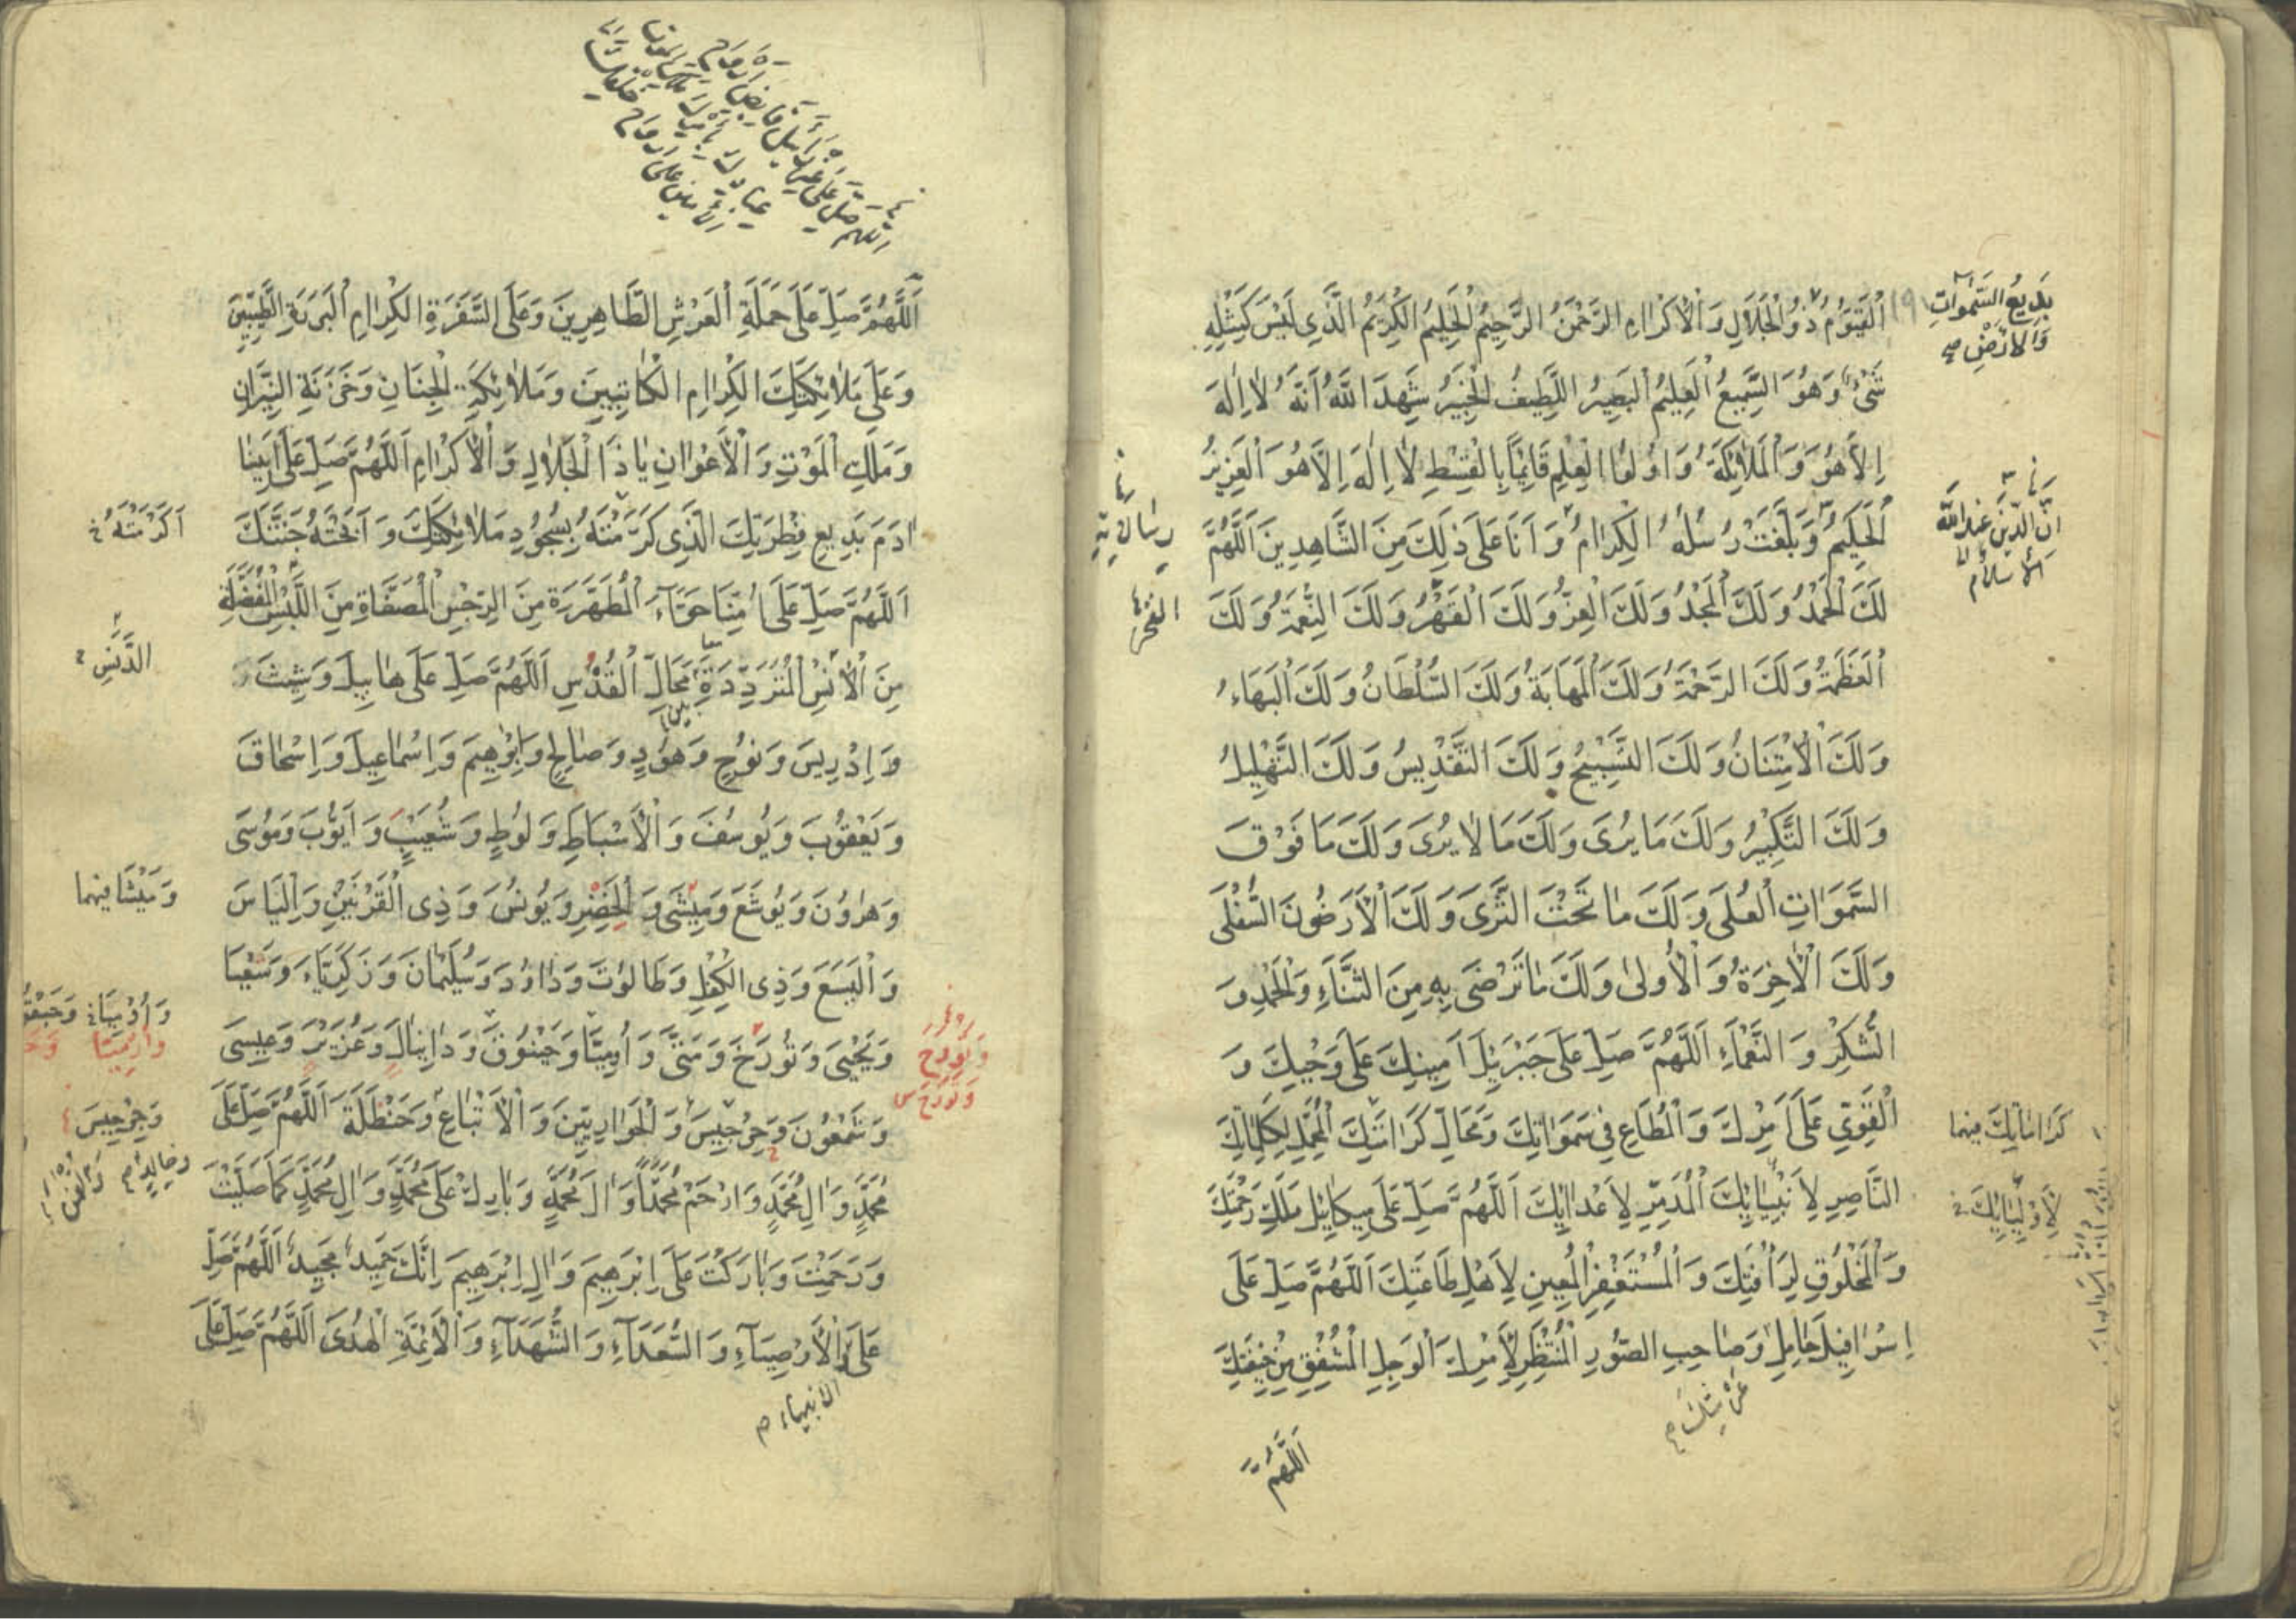 اَلْقَيُّومُ ذُو الْجَلَالِ وَالْاِكْرَامِ الرَّحْمٰنُ الرَّحِيمُ الْحَلِيمُ الْكَرِيمُ الَّذِي لَيْسَ كَمِثْلِهِ
بَدِيعُ السَّمٰوَاتِ
وَالْاَرْضِ
شَيْءٌ وَهُوَ السَّمِيعُ الْعَلِيمُ الْبَصِيرُ اللَّطِيفُ الْخَبِيرُ شَهِدَ اللّٰهُ اَنَّهُ لَا اِلٰهَ
اِلَّا هُوَ وَالْمَلَائِكَةُ وَاُولُوا الْعِلْمِ قَائِمًا بِالْقِسْطِ لَا اِلٰهَ اِلَّا هُوَ الْعَزِيزُ
اِنَّ الدِّينَ عِنْدَ اللّٰهِ
الْاِسْلَامُ
الْحَكِيمُ وَبَلَّغَتْ رُسُلُهُ الْكِرَامُ وَاَنَا عَلَى ذٰلِكَ مِنَ الشَّاهِدِينَ اَللّٰهُمَّ
لَكَ الْحَمْدُ وَلَكَ الْمَجْدُ وَلَكَ الْعِزُّ وَلَكَ الْقَهْرُ وَلَكَ النِّعْمَةُ وَلَكَ
الفخر
الْعَظَمَةُ وَلَكَ الرَّحْمَةُ وَلَكَ الْمَهَابَةُ وَلَكَ السُّلْطَانُ وَلَكَ الْبَهَاءُ
وَلَكَ الْاِمْتِنَانُ وَلَكَ التَّسْبِيحُ وَلَكَ التَّقْدِيسُ وَلَكَ التَّهْلِيلُ
وَلَكَ التَّكْبِيرُ وَلَكَ مَا يُرَى وَلَكَ مَا لَا يُرَى وَلَكَ مَا فَوْقَ
السَّمَوَاتِ الْعُلَى وَلَكَ مَا تَحْتَ الثَّرَى وَلَكَ الْاَرَضُونَ السُّفْلَى
وَلَكَ الْاٰخِرَةُ وَالْاُولَى وَلَكَ مَا تَرْضَى بِهِ مِنَ الثَّنَاءِ وَالْحَمْدِ وَ
الشُّكْرِ وَالنَّعْمَاءِ اَللّٰهُمَّ صَلِّ عَلَى جَبْرَئِيلَ اَمِينِكَ عَلَى وَحْيِكَ وَ
الْقَوِيِّ عَلَى اَمْرِكَ وَالْمُطَاعِ فِي سَمَوَاتِكَ وَمَحَالِّ كَرَامَتِكَ الْمُتَحَمِّلِ لِكَلِمَاتِكَ
كَرَامَاتِكَ فيهما
النَّاصِرِ لِاَنْبِيَائِكَ الْمُدَمِّرِ لِاَعْدَائِكَ اَللّٰهُمَّ صَلِّ عَلَى مِيكَائِيلَ مَلَكِ رَحْمَتِكَ
لِاَوْلِيَائِكَ
وَالْمَخْلُوقِ لِرَاْفَتِكَ وَالْمُسْتَغْفِرِ الْمُعِينِ لِاَهْلِ طَاعَتِكَ اَللّٰهُمَّ صَلِّ عَلَى
اِسْرَافِيلَ حَامِلِ وَصَاحِبِ الصُّورِ الْمُنْتَظِرِ لِاَمْرِكَ الْوَجِلِ الْمُشْفِقِ مِنْ خِيفَتِكَ
عرشك
اَللّٰهُمَّ
اَللّٰهُمَّ صَلِّ عَلَى حَمَلَةِ الْعَرْشِ الطَّاهِرِينَ وَعَلَى السَّفَرَةِ الْكِرَامِ الْبَرَرَةِ الطَّيِّبِينَ
وَعَلَى مَلَائِكَتِكَ الْكِرَامِ الْكَاتِبِينَ وَمَلَائِكَةِ الْجِنَانِ وَخَزَنَةِ النِّيرَانِ
وَمَلَكِ الْمَوْتِ وَالْاَعْوَانِ يَا ذَا الْجَلَالِ وَالْاِكْرَامِ اَللّٰهُمَّ صَلِّ عَلَى اَبِينَا
اٰدَمَ بَدِيعِ فِطْرَتِكَ الَّذِي كَرَّمْتَهُ بِسُجُودِ مَلَائِكَتِكَ وَاَبَحْتَهُ جَنَّتَكَ
اَكْرَمْتَهُ
اَللّٰهُمَّ صَلِّ عَلَى اُمِّنَا حَوَّاءَ الْمُطَهَّرَةِ مِنَ الرِّجْسِ الْمُصَفَّاةِ مِنَ اللَّبْسِ الْمُفَضَّلَةِ
الدَّنَسِ
مِنَ الْاِنْسِ الْمُتَرَدِّدَةِ مَحَالِّ الْقُدْسِ اَللّٰهُمَّ صَلِّ عَلَى هَابِيلَ وَشِيثَ
بين
وَاِدْرِيسَ وَنُوحٍ وَهُودٍ وَصَالِحٍ وَاِبْرٰهِيمَ وَاِسْمَاعِيلَ وَاِسْحَاقَ
وَيَعْقُوبَ وَيُوسُفَ وَالْاَسْبَاطِ وَلُوطٍ وَشُعَيْبٍ وَاَيُّوبَ وَمُوسَى
وَهَارُونَ وَيُوشَعَ وَمِيشَى وَالْخَضِرِ وَيُونُسَ وَذِي الْقَرْنَيْنِ وَاِلْيَاسَ
وَمِيشَا فيهما
وَالْيَسَعَ وَذِي الْكِفْلِ وَطَالُوتَ وَدَاوُدَ وَسُلَيْمَانَ وَزَكَرِيَّاءَ وَشَعْيَا
وَيَحْيَى وَتُورَخَ وَمَتَّى وَاُرْمِيَا وَحَيْقُوقَ وَدَانِيَالَ وَعُزَيْرَ وَعِيسَى
وَشَمْعُونَ وَجِرْجِيسَ وَالْحَوَارِيِّينَ وَالْاَتْبَاعِ وَحَنْظَلَةَ اَللّٰهُمَّ صَلِّ عَلَى
وَجِرْجِيسَ
مُحَمَّدٍ وَاٰلِ مُحَمَّدٍ وَارْحَمْ مُحَمَّدًا وَاٰلَ مُحَمَّدٍ وَبَارِكْ عَلَى مُحَمَّدٍ وَاٰلِ مُحَمَّدٍ كَمَا صَلَّيْتَ
وَرَحِمْتَ وَبَارَكْتَ عَلَى اِبْرَهِيمَ وَاٰلِ اِبْرَهِيمَ اِنَّكَ حَمِيدٌ مَجِيدٌ اَللّٰهُمَّ صَلِّ
عَلَى الْاَوْصِيَاءِ وَالسُّعَدَاءِ وَالشُّهَدَاءِ وَالْاَئِمَّةِ الْهُدَى اَللّٰهُمَّ صَلِّ عَلَى
الانبياء